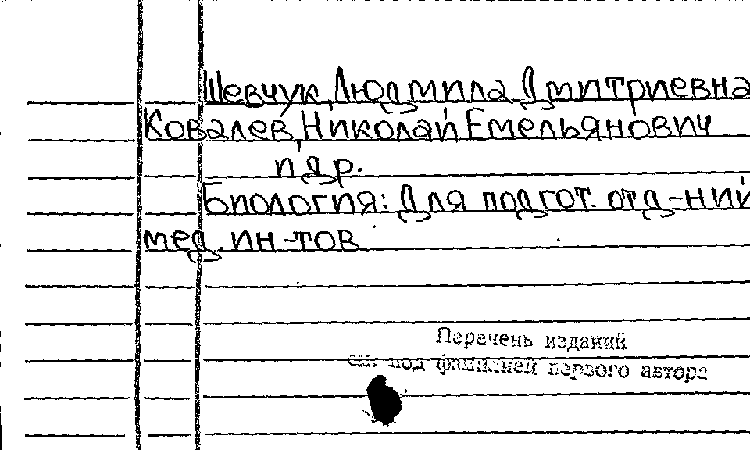 Шевчук, Людмила Дмитриевна
Ковалев, Николай Емельянович
и др.
Биология: Для подгот. отд-ний
мед. ин-тов
Перечень изданий
см. под фамилией первого автора